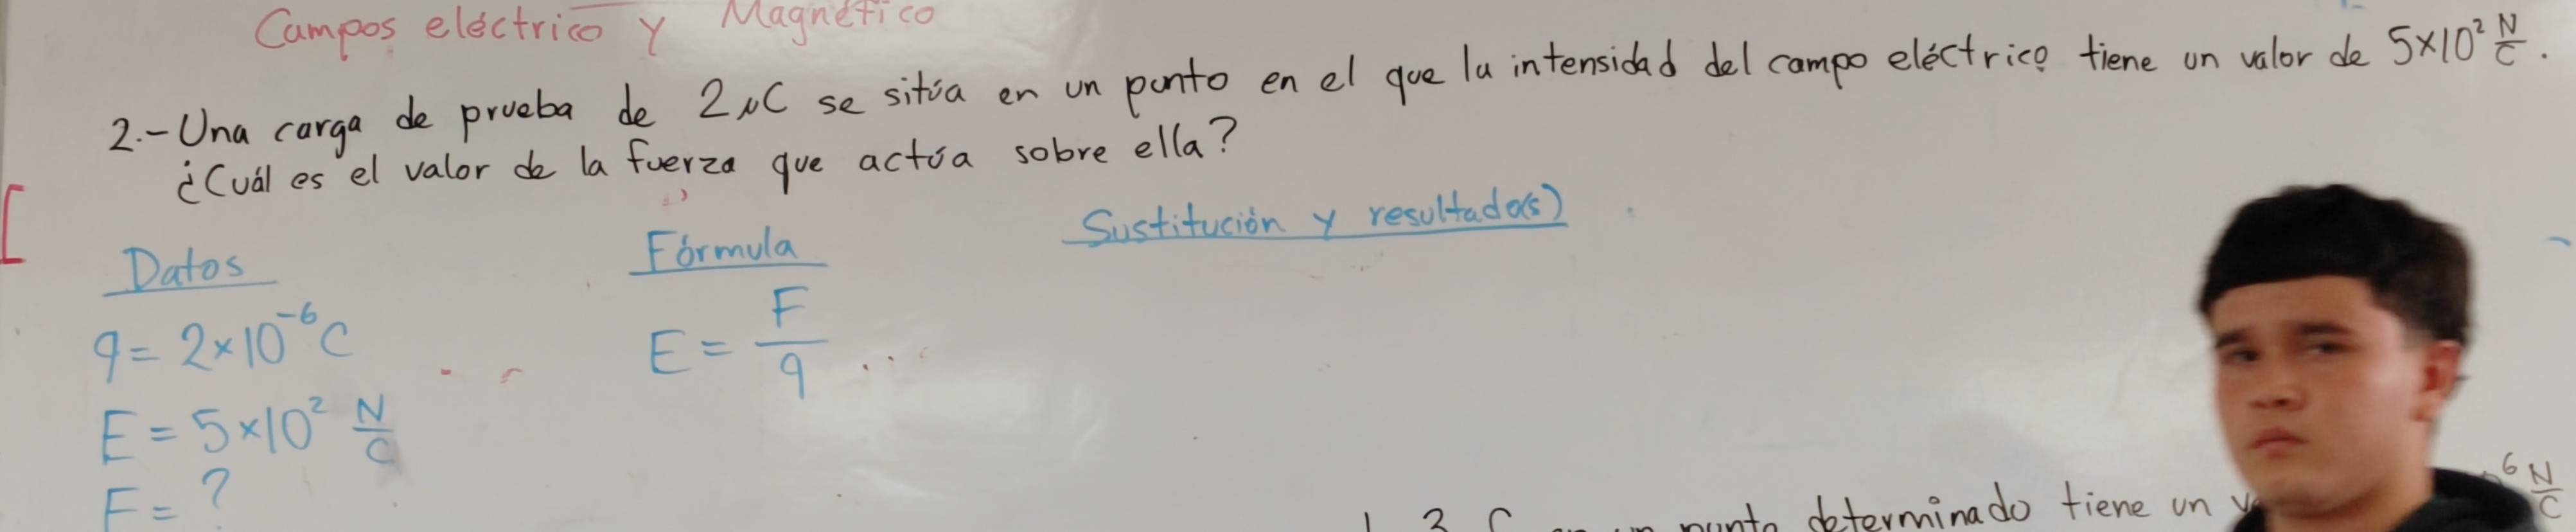 Campos eléctrico y Magnético
2.- Una carga de prueba de 2 μC se sitúa en un punto en el que la intensidad del campo eléctrico tiene un valor de 5×10² N/C.
¿Cuál es el valor de la fuerza que actúa sobre ella?
Datos
q = 2×10⁻⁶ C
E = 5×10² N/C
F = ?
Fórmula
E = F/q
Sustitución y resultado(s)
determinado tiene un
6 N/C